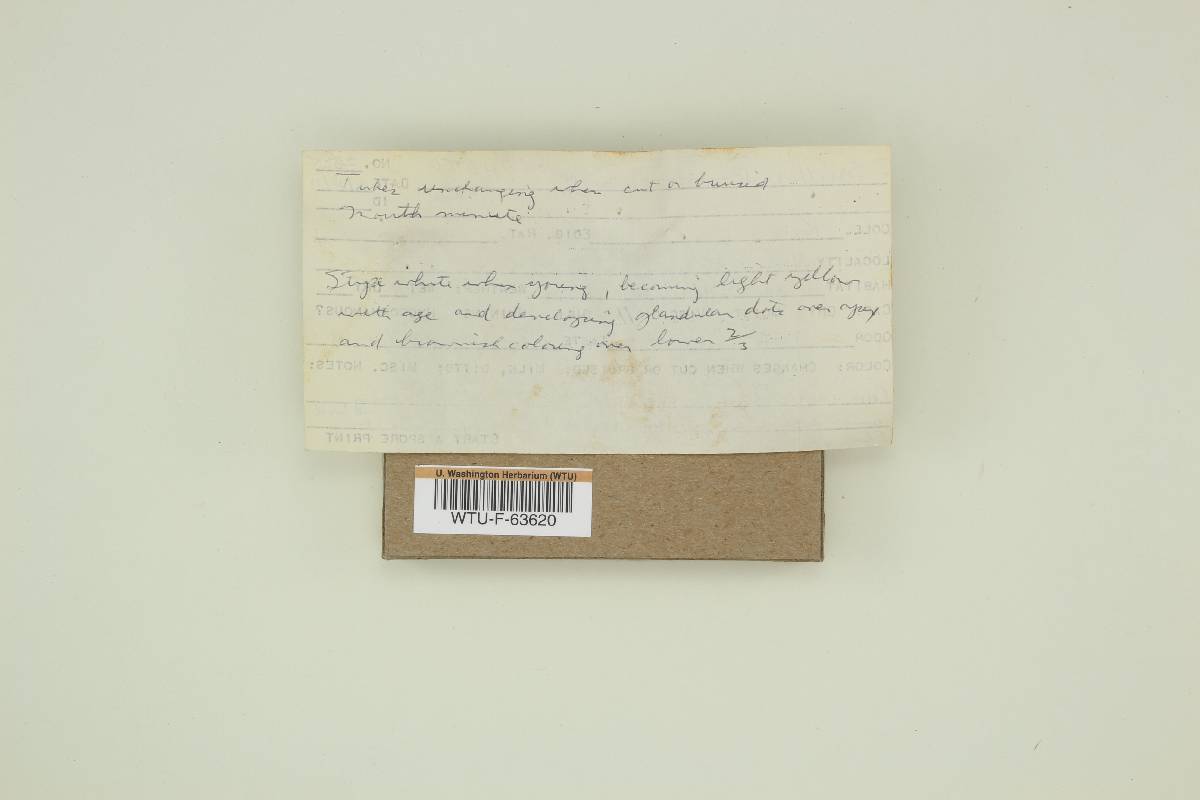 Tubes unchanging when cut or bruised
Mouth minute
Stipe white when young, becoming light yellow
with age and developing glandular dots over apex
and brownish coloring over lower 2/3
NO.
DATE
ID
COLL.
EDIB. RAT.
LOCALITY
HABITAT
ODOR
COLOR: CHANGES WHEN CUT OR BRUISED: MILK, DITTO: MISC. NOTES:
START A SPORE PRINT
U. Washington Herbarium (WTU)
WTU-F-63620